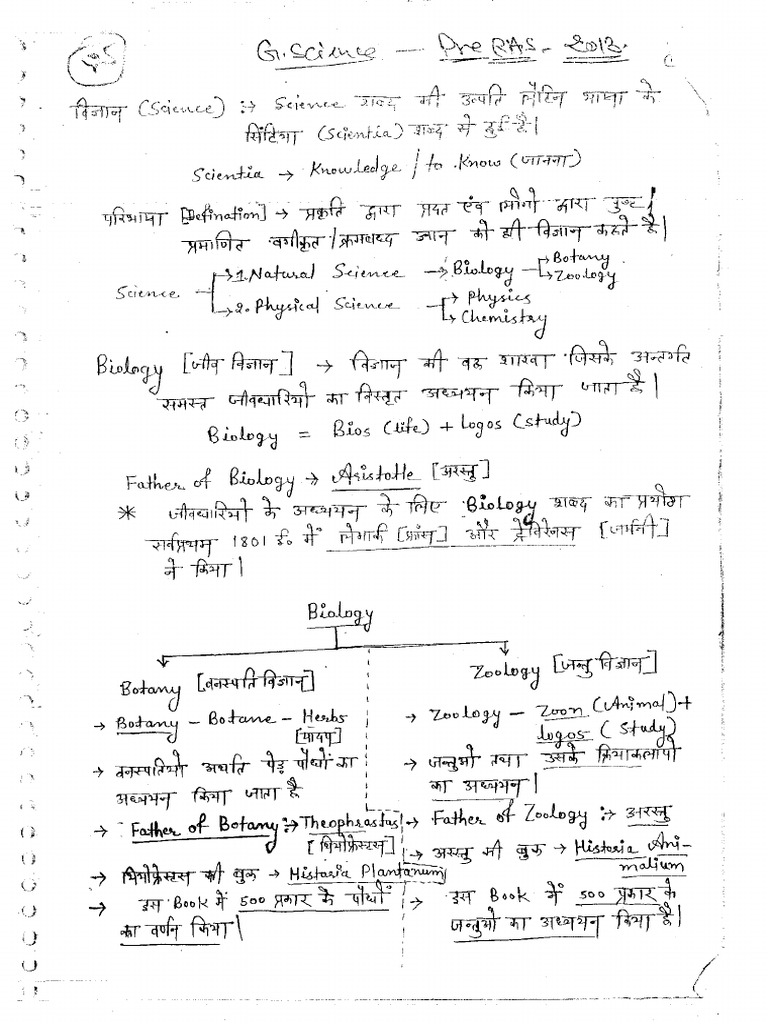 G. Science — Pre RAS - 2013.
विज्ञान (Science) :→ Science शब्द की उत्पति लैटिन भाषा के
सिंटिया (Scientia) शब्द से हुई है।
Scientia → Knowledge / to Know (जानना)
परिभाषा [Defination] → प्रकृति द्वारा प्रदत एंव द्वारा
प्रमाणित वर्गीकृत / क्रमबध्द ज्ञान को ही विज्ञान कहते है।
Science → 1. Natural Science → Biology → Botany
→ Zoology
→ 2. Physical Science → Physics
→ Chemistry
Biology [जीव विज्ञान] → विज्ञान की वह शाखा जिसके अन्तर्गत
समस्त जीवधारियो का विस्तृत अध्ययन किया जाता है।
Biology = Bios (life) + Logos (study)
Father of Biology → Aristotle [अरस्तु]
* जीवधारियो के अध्ययन के लिए Biology शब्द का प्रयोग
सर्वप्रथम 1801 ई० में लेमार्क [फ्रांस] और ट्रेविरेनस [जर्मनी]
ने किया।
Biology
Botany [वनस्पति विज्ञान]
→ Botany - Botane - Herbs
[पादप]
→ वनस्पतियो अर्थात पेड़ पौधों का
अध्ययन किया जाता है
→ Father of Botany :→ Theophrastus
[थियोफ्रेस्टस]
→ थियोफ्रेस्टस की बुक → Histaria Plantanum
→ इस Book में 500 प्रकार के पौधों
का वर्णन किया।
Zoology [जन्तु विज्ञान]
→ Zoology - Zoon (Animal) +
logos (study)
→ जन्तुओ तथा उसके क्रियाकलापो
का अध्ययन।
→ Father of Zoology :→ अरस्तु
→ अरस्तु की बुक → Histaria Ani-
malium
→ इस Book में 500 प्रकार के
जन्तुओ का अध्ययन किया है।